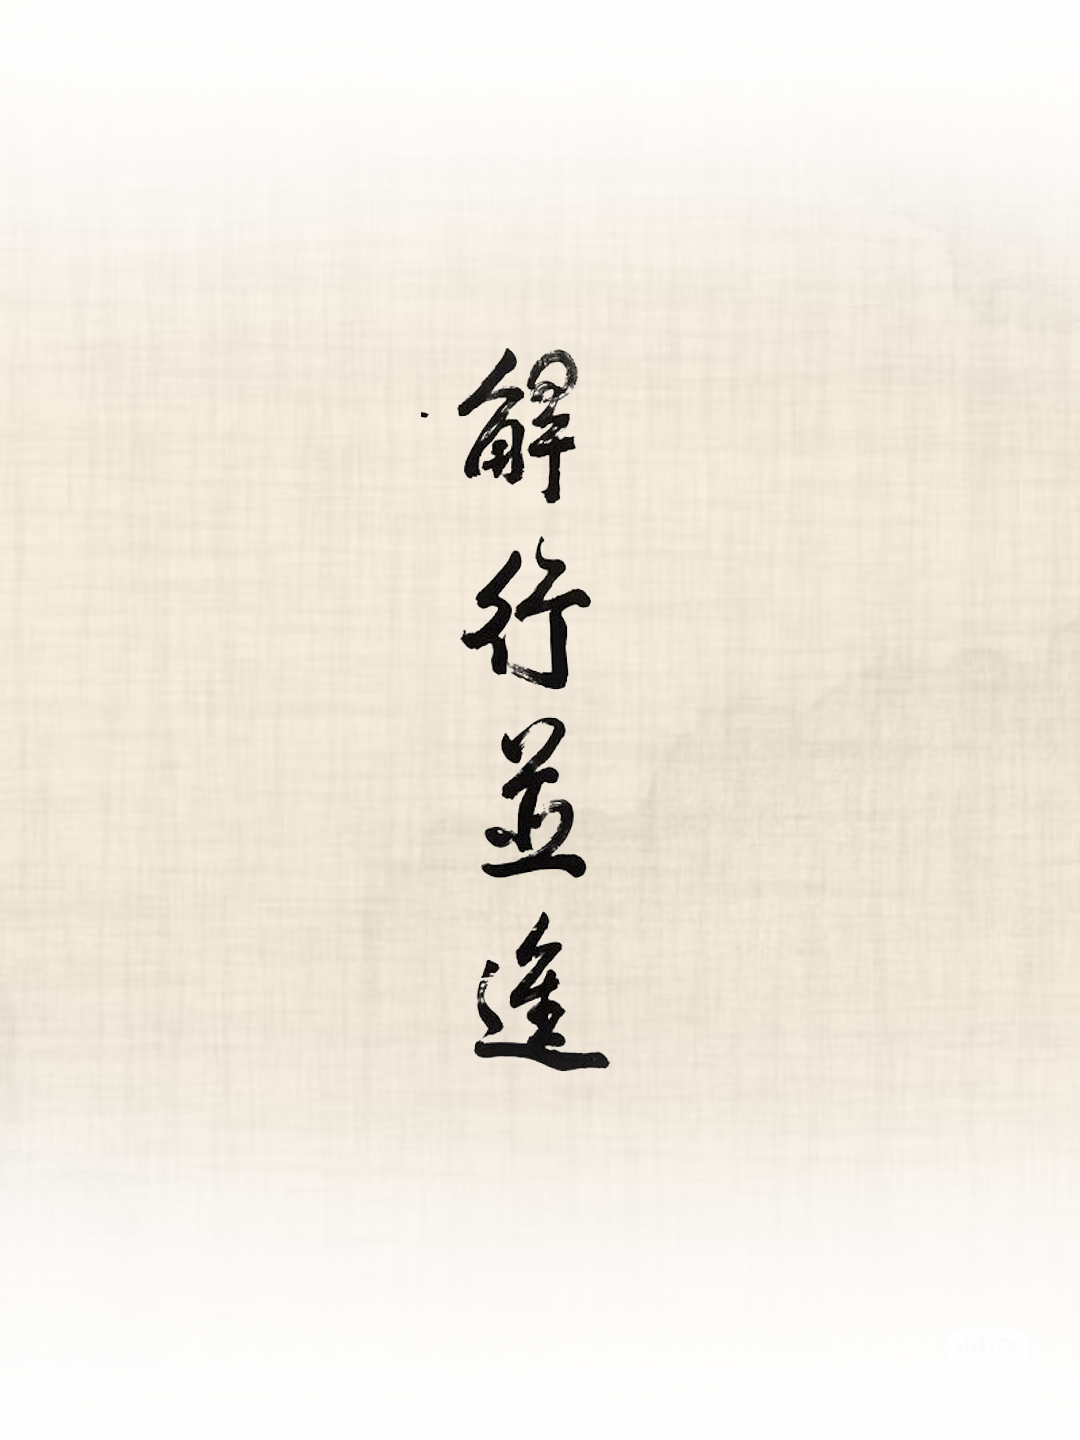 解行並進